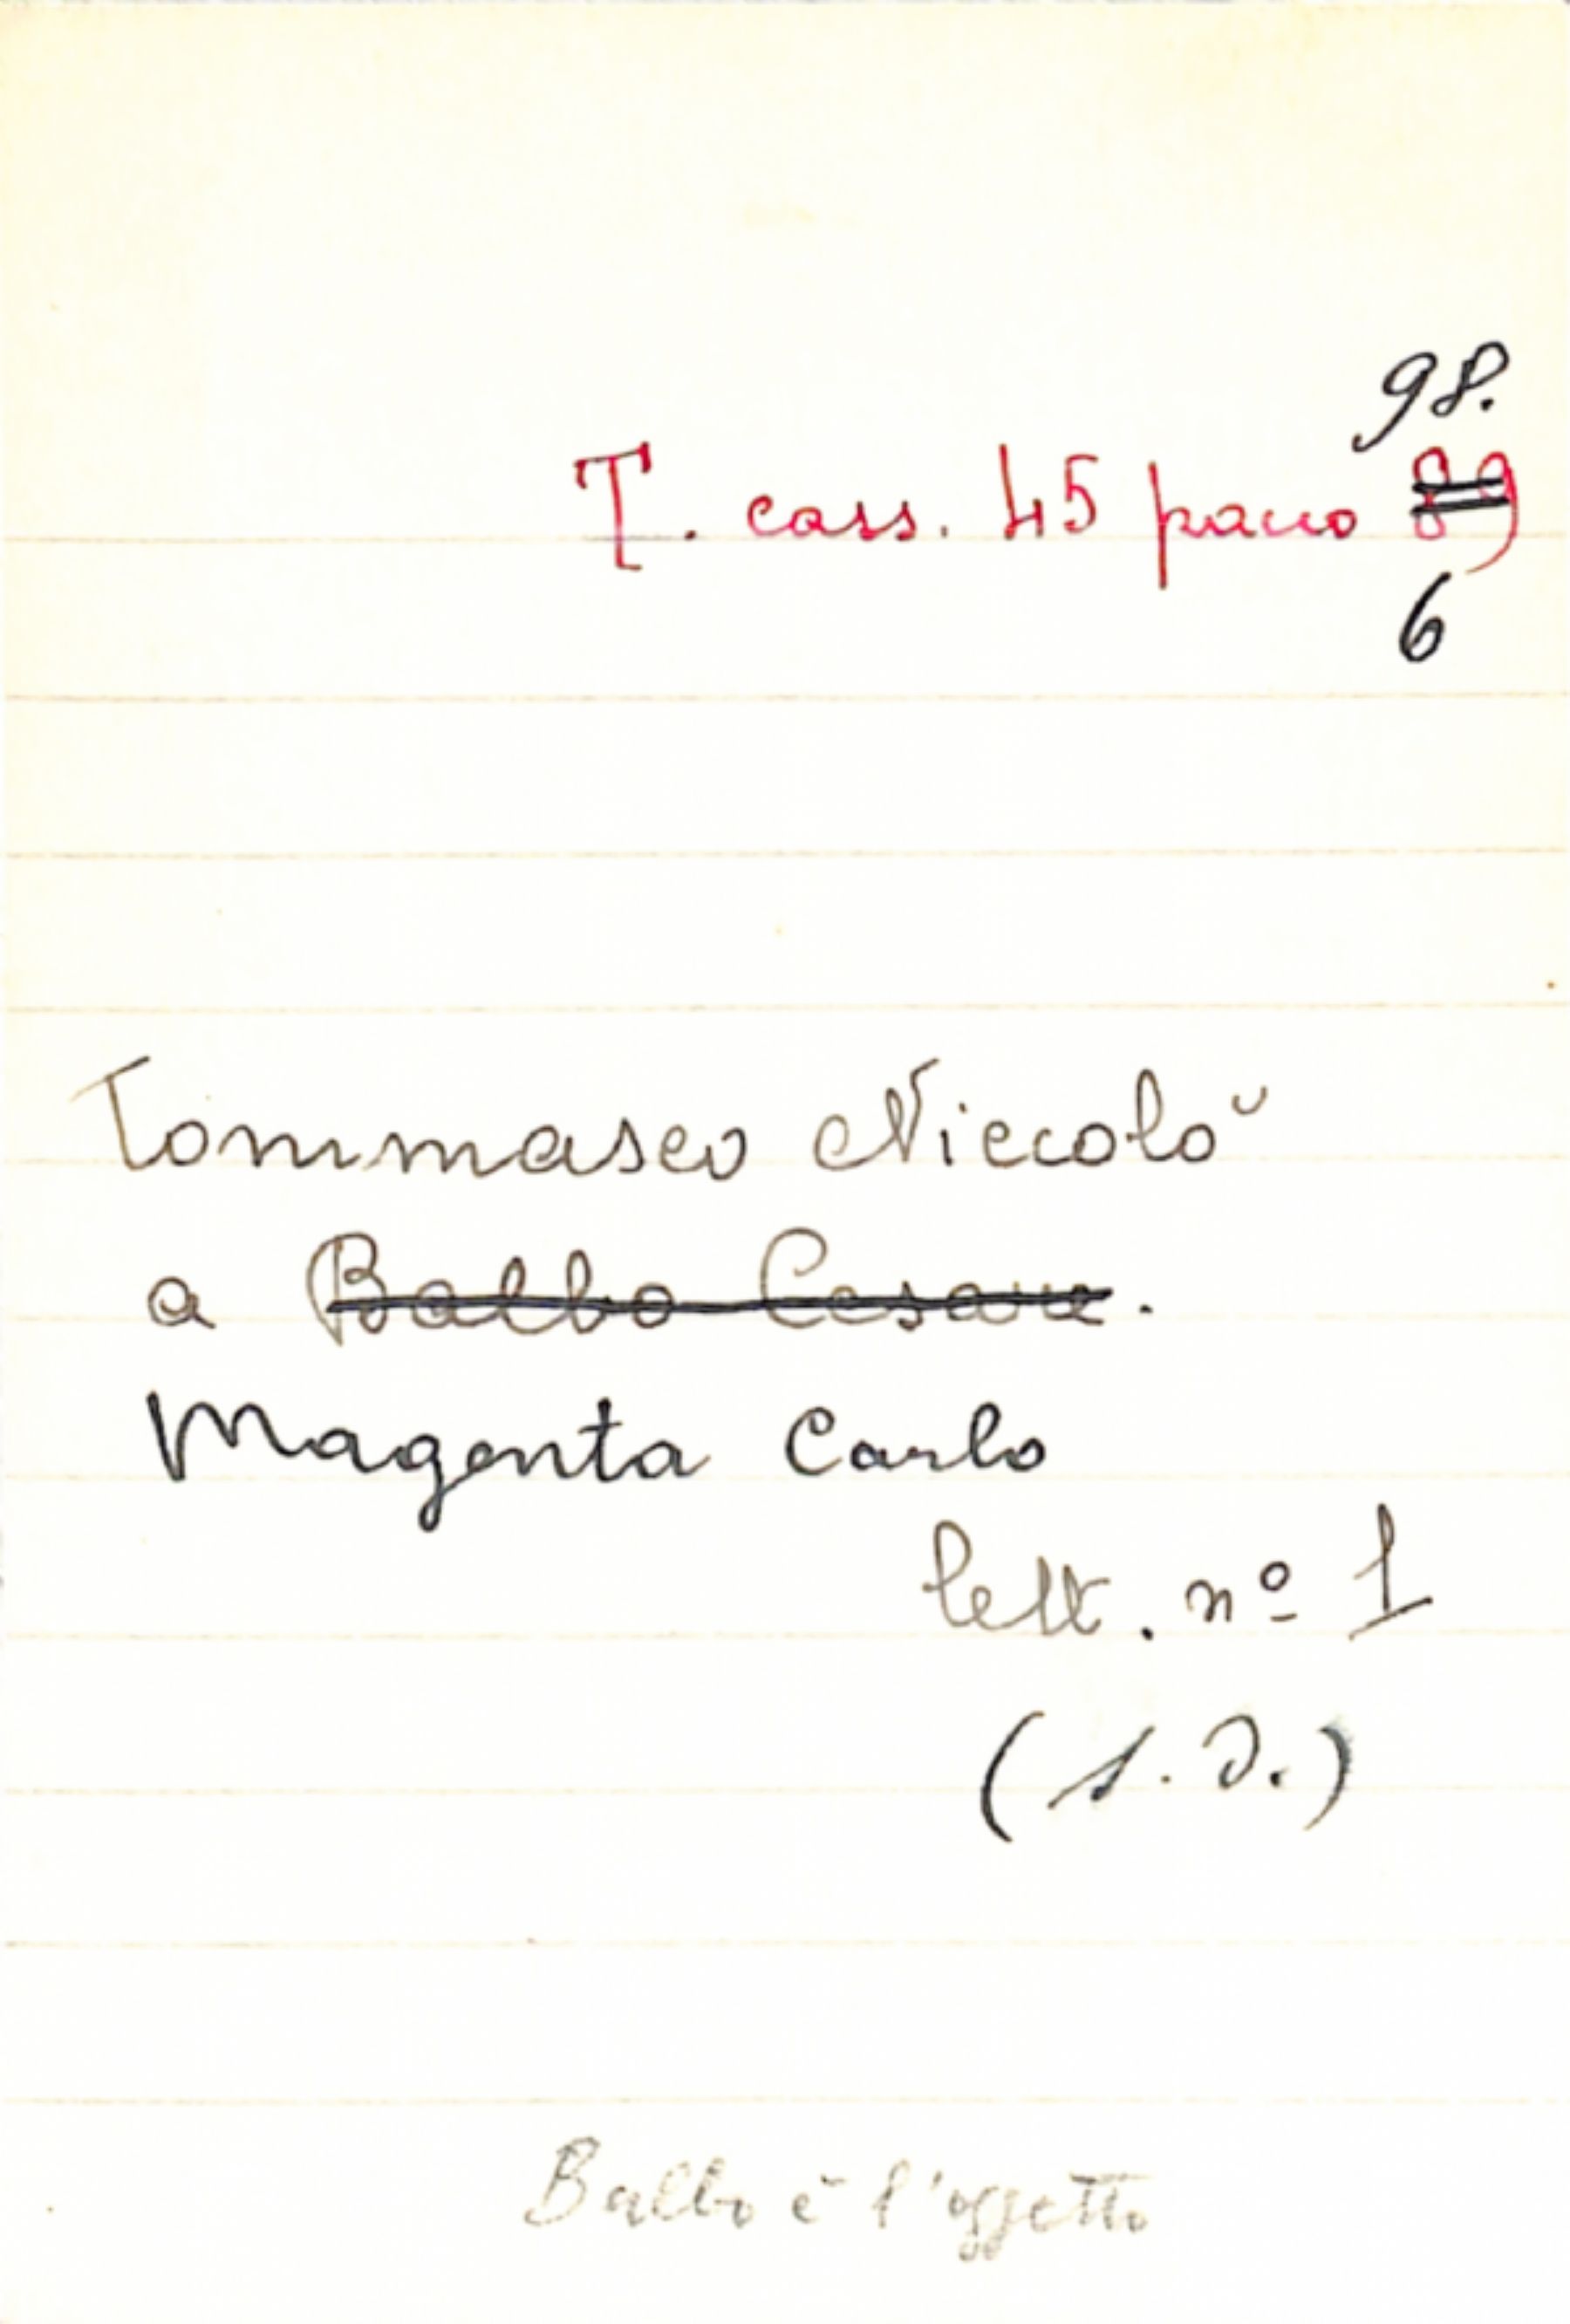 98.
T. cass. 45 pacco 89
6
Tommaseo Niccolò
a Balbo Cesare.
Magenta Carlo
lett. nº 1
(s.d.)
Balbo è l'oggetto